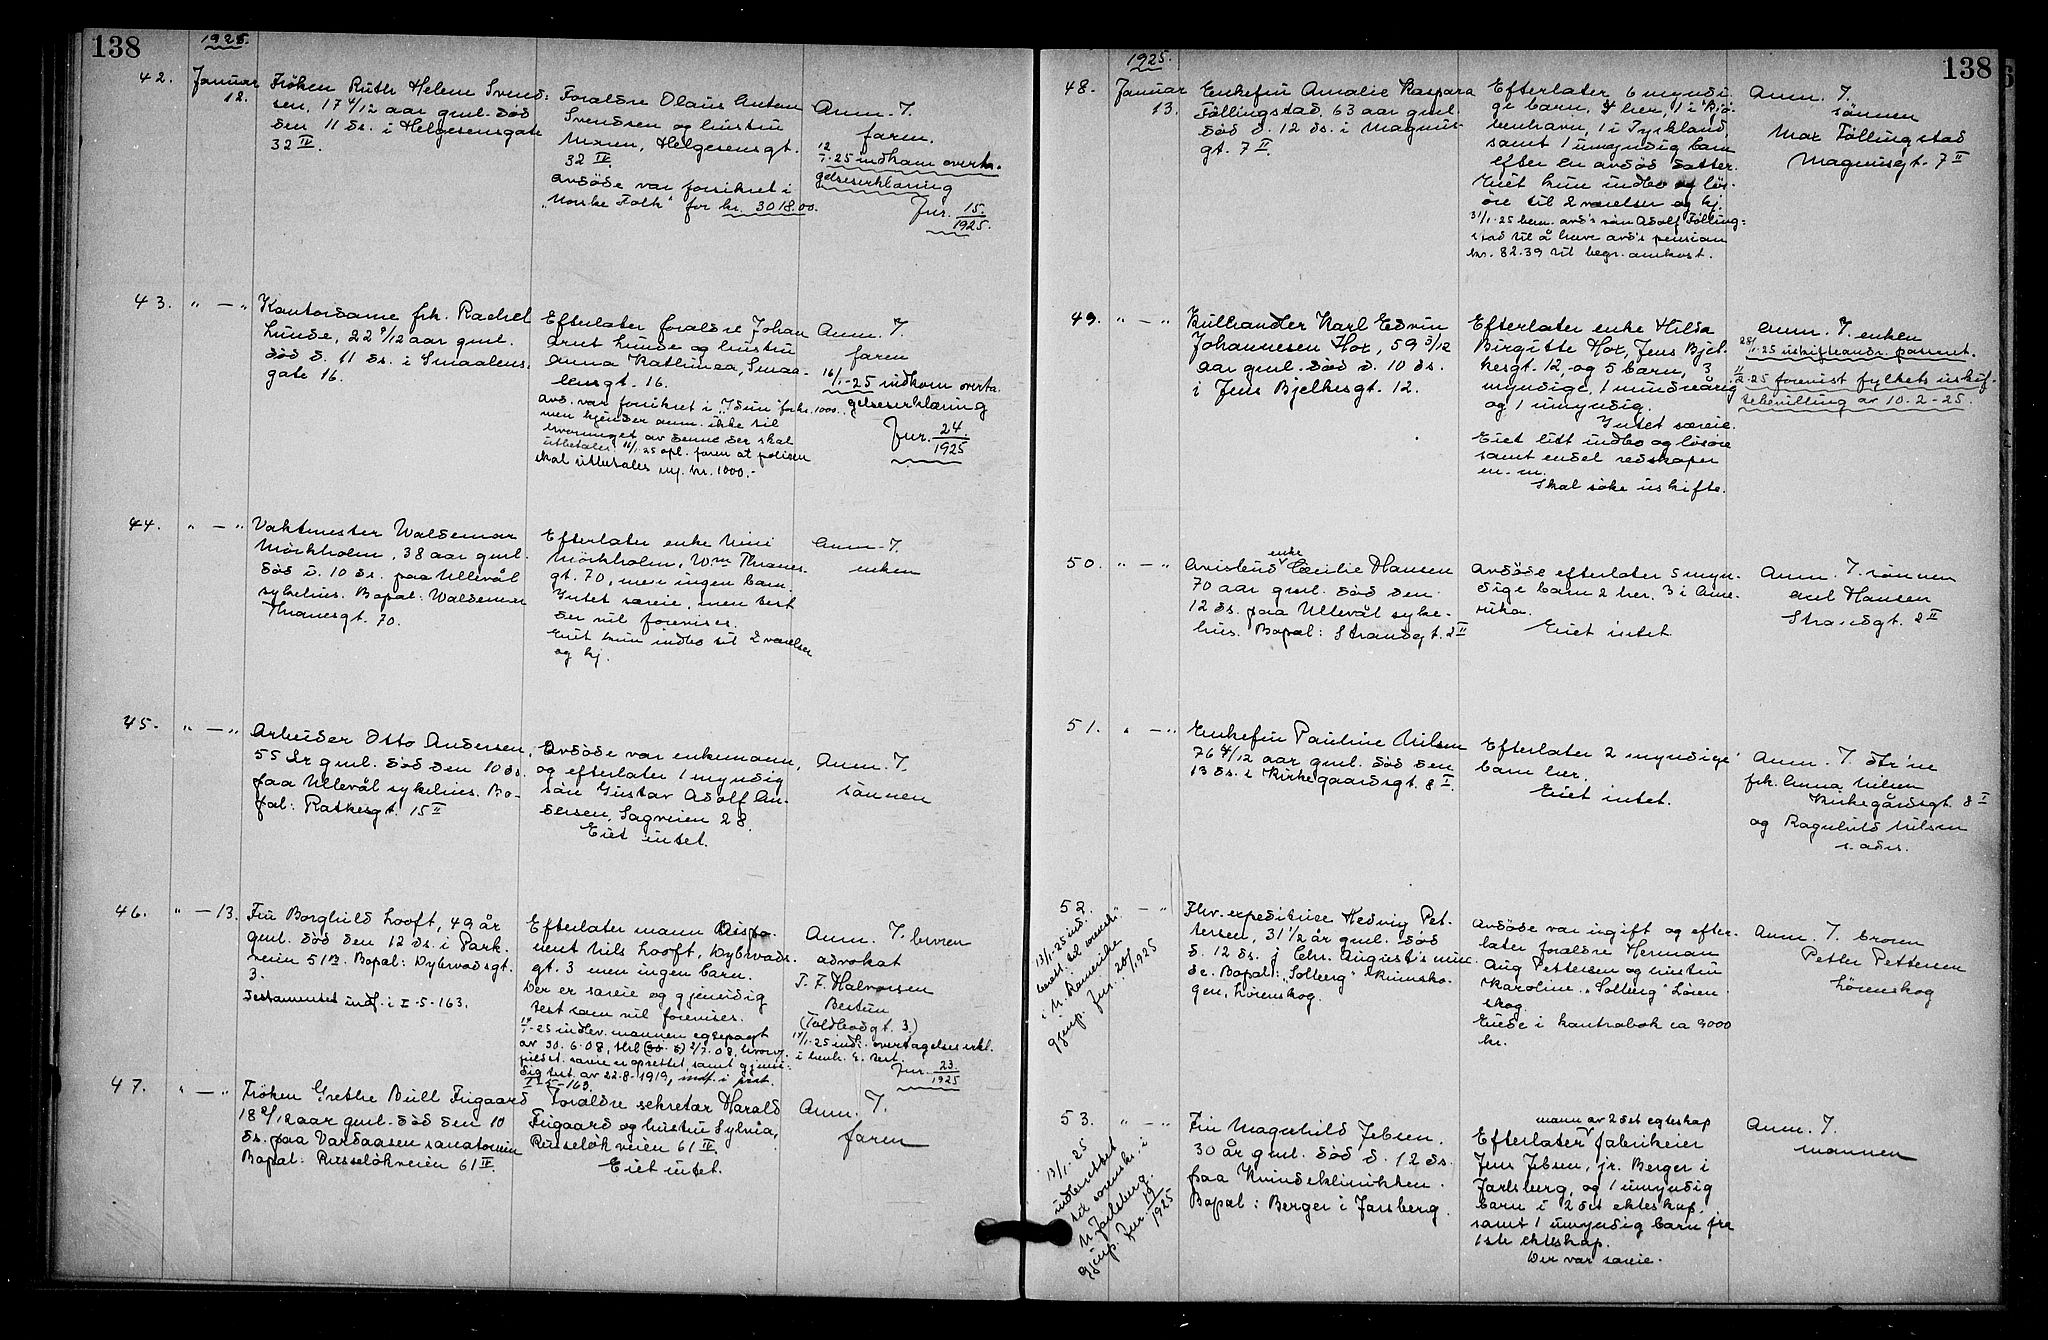 138
1925.
42. Januar 12.
Frøken Ruth Helene Svend-
sen, 17 4/12 aar gml. død
den 11 ds. i Helgesensgate
32 IV.
Forældre Olaus Anton
Svendsen og hustru
Maren, Helgesensgt.
32 IV.
avdøde var forsikret i
"Norske Folk" for kr. 3018.00.
Anm. J.
faren.
12/1-25 indkom overta-
gelseserklæring
Jur. 15/1925.
43. " — "
Kontordame frk. Rachel
Lunde, 22 9/12 aar gml.
død d. 11 ds. i Smaalens-
gate 16.
Efterlater forældre Johan
Arnt Lunde og hustru
Anna Kathinca, Smaa-
lensgt. 16.
avd. var forsikret i "Idun" for kr. 1000.-
men kjender anm. ikke til
hvormeget av denne der skal
utbetales. 16/1-25 opl. faren at polisen
skal utbetales m/ kr. 1000.-
Anm. J.
faren
16/1-25 indkom overta-
gelseserklæring
Jur. 24/1925
44. " — "
Vaktmester Waldemar
Mörkholm, 38 aar gml.
død d. 10 ds. paa Ullevål
sykehus. Bopæl: Waldemar
Thranesgt. 70.
Efterlater enke Mimi
Mörkholm, Wm Thranes-
gt. 70, men ingen barn.
Intet særeie, men test
der vil forevises.
Eiet kun indbo til 2 værelser
og kj.
Anm. J.
enken
45. " — "
Arbeider Otto Andersen,
55 år gml. død den 10 ds.
paa Ullevål sykehus. Bo-
pæl: Rathkesgt. 15 II
Avdøde var enkemann,
og efterlater 1 myndig
søn Gustav Adolf An-
dersen, Sagveien 28.
Eiet intet.
Anm. J.
sønnen
46. " — 13.
Fru Borghild Looft, 49 år
gml. død den 12 ds. i Park-
veien 51 B. Bopæl: Dybwadsgt.
3.
Testamentet indf. i I-5-163.
Efterlater mann dispo-
nent Nils Looft, Dybwads-
gt. 3 men ingen barn.
Der er særeie og gjensidig
test som vil forevises.
14/1-25 indlev. mannen egtepagt
av 30.6.08, thl (30. 6) 2/7.08, hvorv.
særeie er oprettet samt gjensi-
dig test. av 22.8-1919, indf. i prot.
I-5-163.
Anm. J. broren
advokat
T. F. Halvorsen
Bestun
(Toldbodgt. 3.)
14/1-25 indl. overtagelseserkl.
i henh. t. test.
Jur. 23/1925
47. " — "
Frøken Grethe Bull Fuigaard
18 2/12 aar gml. død den 10
ds. paa Vardaasen sanatorium
Bopæl: Ruseløkveien 61 IV.
Forældre sekretær Harald
Fuigaard og hustru Sylvia,
Ruseløkveien 61 IV.
Eiet intet.
Anm. J.
faren
138
1925.
48. Januar 13.
Enkefru Amalie Kaspara
Föllingstad, 63 aar gml.
død d. 12 ds. i Magnus-
gt. 7 II.
Efterlater 6 myndi-
ge barn, 4 her, 1 i Kjø-
benhavn, 1 i Tyskland,
samt 1 umyndig barn
efter en avdød datter.
Eiet kun indbo og løs-
øre til 2 værelser og kj.
31/1-25 bem. avd's søn Adolf Følling-
stad til å heve avd's pension
kr. 82.39 til begr. omkost.
Anm. J.
sönnen
Max Föllingstad
Magnusgt. 7 II
49. " — "
Kulhandler Karl Edvin
Johannesen Hox, 59 3/12
aar gml. død d. 10 ds.
i Jens Bjelkesgt. 12.
Efterlater enke Hilda
Birgitte Hox, Jens Bjel-
kesgt. 12, og 5 barn, 3
myndige, 1 mindreårig
og 1 umyndig.
Intet særeie.
Eiet litt indbo og løsøre
samt endel redskaper
m. m.
Skal søke uskifte.
Anm. J. enken
28/1-25 uskifteandr. passeret.
11/2-25 forevist fylkets uskif-
tebevilling av 10-2-25.
50. " — "
Avisbud enke Cecilie Hansen
70 aar gml. død den
12 ds. paa Ullevål syke-
hus. Bopæl: Strandgt. 2 II
Avdøde efterlater 5 myn-
dige barn 2 her, 3 i Ame-
rika.
Eiet intet.
Anm. J. sønnen
Axel Hansen
Strandgt. 2 II
51. " — "
Enkefru Pauline Nilsen
76 4/12 aar gml. død den
13 ds. i Kirkegaardsgt. 8 I.
Efterlater 2 myndige
barn her.
Eiet intet.
Anm. J. dtr'ne
frk. Anna Nilsen
Kirkegårdsgt. 8 I
og Ragnhild Nilsen
s. adr.
52. — "
13/1-25 ind.
beret. til sorenskr.
i N. Romerike
gjenp. Jur. 20/1925
Fhv. expeditrice Hedvig Pet-
tersen, 31 1/2 år gml. død
d. 12 ds. i Chr. August's min-
de. Bopæl: "Solberg" Skimsko-
gen, Lörenskog.
Avdøde var ugift og efter-
later forældre Herman
Aug Pettersen og hustru
Karoline. "Solberg" Lören-
skog.
Eiede i kontrabok ca 9000
kr.
Anm. J. broren
Petter Pettersen
Lörenskog
53. " — "
13/1-25
indberettet
til sorenskr. i
N. Jarlsberg.
gjenp. Jur. 19/1925
Fru Magnhild Jebsen.
30 år gml. død d. 12 ds.
paa Kvindeklinikken.
Bopæl: Berger i Jarlsberg.
mann av 2det egteskap
Efterlater fabrikeier
Jens Jebsen, jr. Berger i
Jarlsberg, og 1 umyndig
barn i 2det ekteskap.
samt 1 umyndig barn fra
1ste ekteskap.
Der var særeie.
Anm. J.
mannen